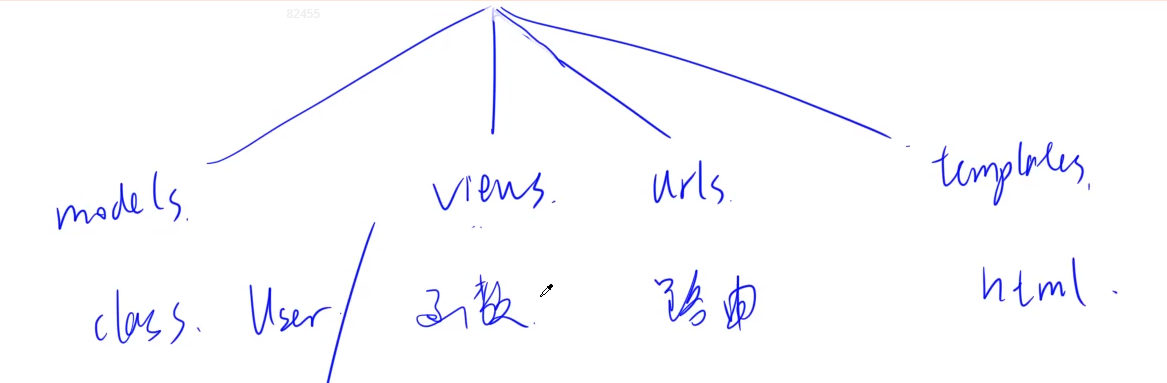 82455
models. views. urls. templates.
class. User 函数. 路由 html.